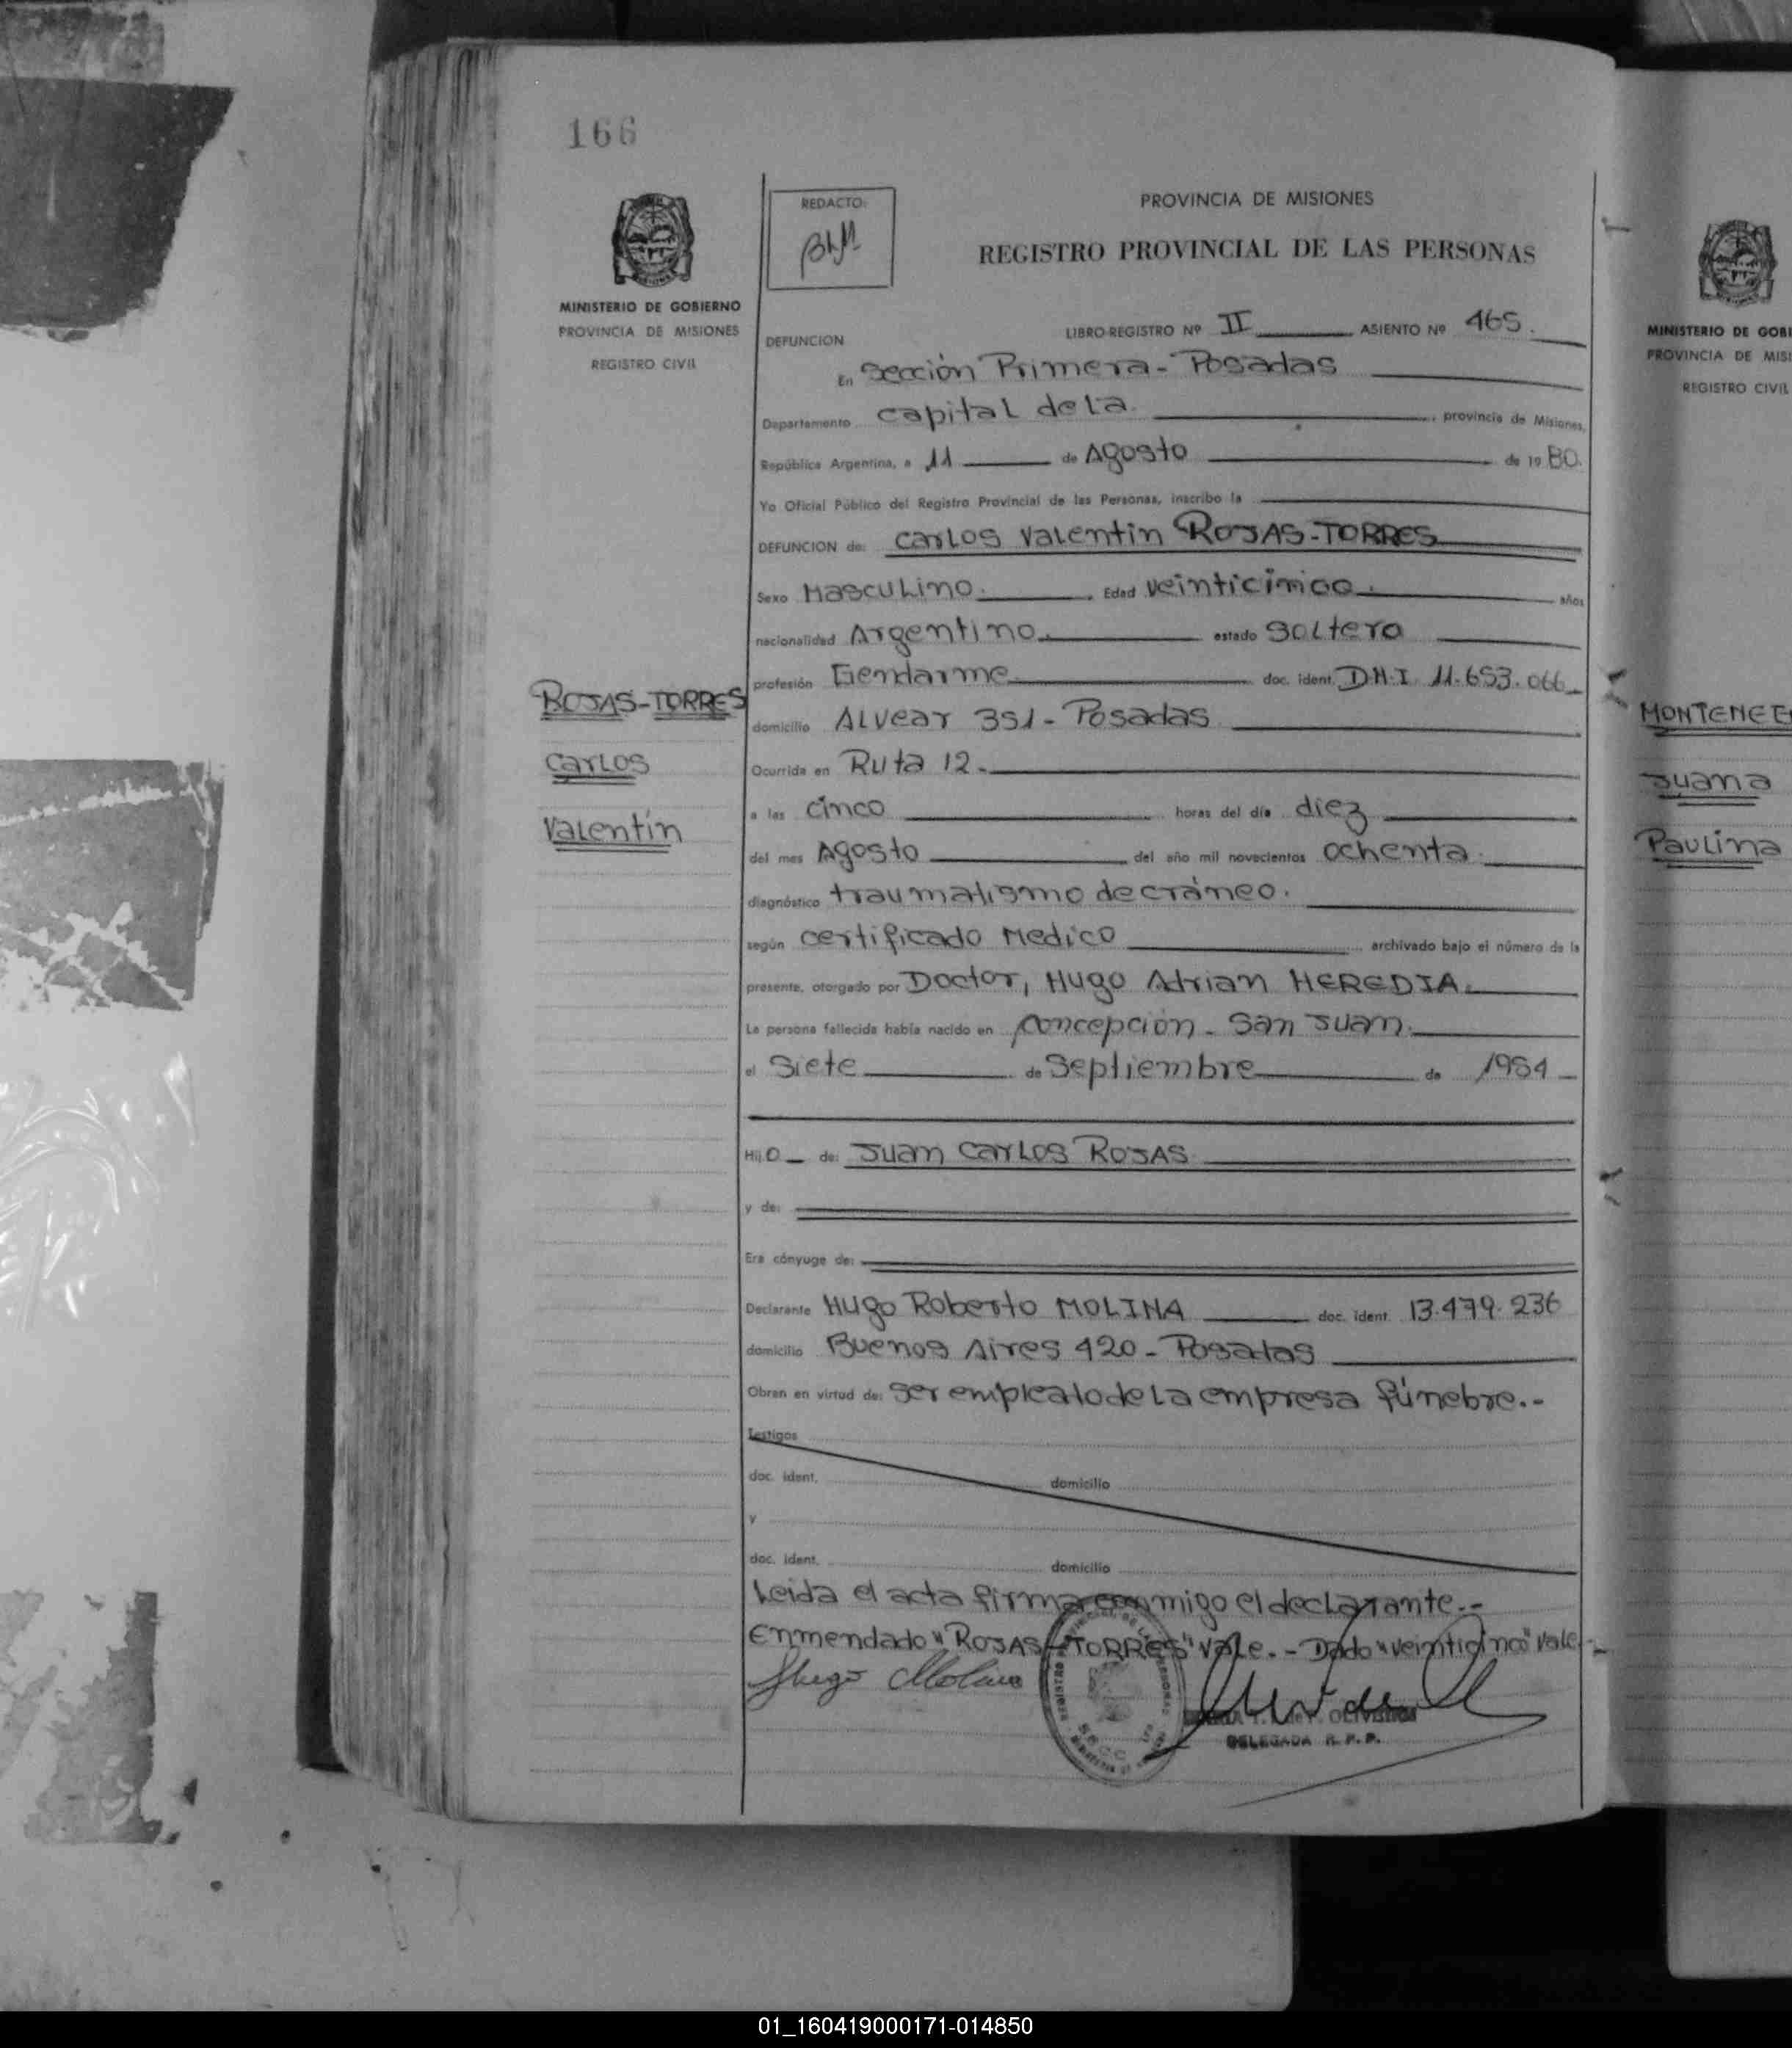 166
MINISTERIO DE GOBIERNO
PROVINCIA DE MISIONES
REGISTRO CIVIL
REDACTO:
PROVINCIA DE MISIONES
REGISTRO PROVINCIAL DE LAS PERSONAS
DEFUNCION LIBRO-REGISTRO Nº II ASIENTO Nº 465.
En Sección Primera - Posadas
Departamento capital de La provincia de Misiones,
República Argentina, a 11 de Agosto de 1980.
Yo Oficial Público del Registro Provincial de las Personas, inscribo la
DEFUNCION de: Carlos Valentin ROJAS-TORRES
Sexo Masculino. Edad veinticinco. años
nacionalidad Argentino. estado Soltero
profesión Gendarme doc. ident. D.N.I. 11.653.066
ROJAS-TORRES
Carlos
Valentín
domicilio Alvear 351 - Posadas
Ocurrida en Ruta 12.
a las cinco horas del día diez
del mes Agosto del año mil novecientos ochenta.
diagnóstico traumatismo de cráneo.
según certificado Medico archivado bajo el número de la
presente, otorgado por Doctor, Hugo Adrian HEREDIA.
La persona fallecida había nacido en Concepción - San Juan.
el Siete de Septiembre de 1954
Hijo de: Juan Carlos ROJAS
y de:
Era cónyuge de:
Declarante Hugo Roberto MOLINA doc. ident. 13.479.236
domicilio Buenos Aires 420 - Posadas
Obran en virtud de: Ser empleado de La empresa fúnebre.-
Testigos
doc. ident. domicilio
y
doc. ident. domicilio
Leida el acta firma conmigo el declarante.-
Enmendado "ROJAS-TORRES" Vale. - Dado "veinticinco" Vale.-
Hugo Molina
DELEGADA R. P. P.
MINISTERIO DE GOBI
PROVINCIA DE MISI
REGISTRO CIVIL
Juana
Paulina
01_160419000171-014850